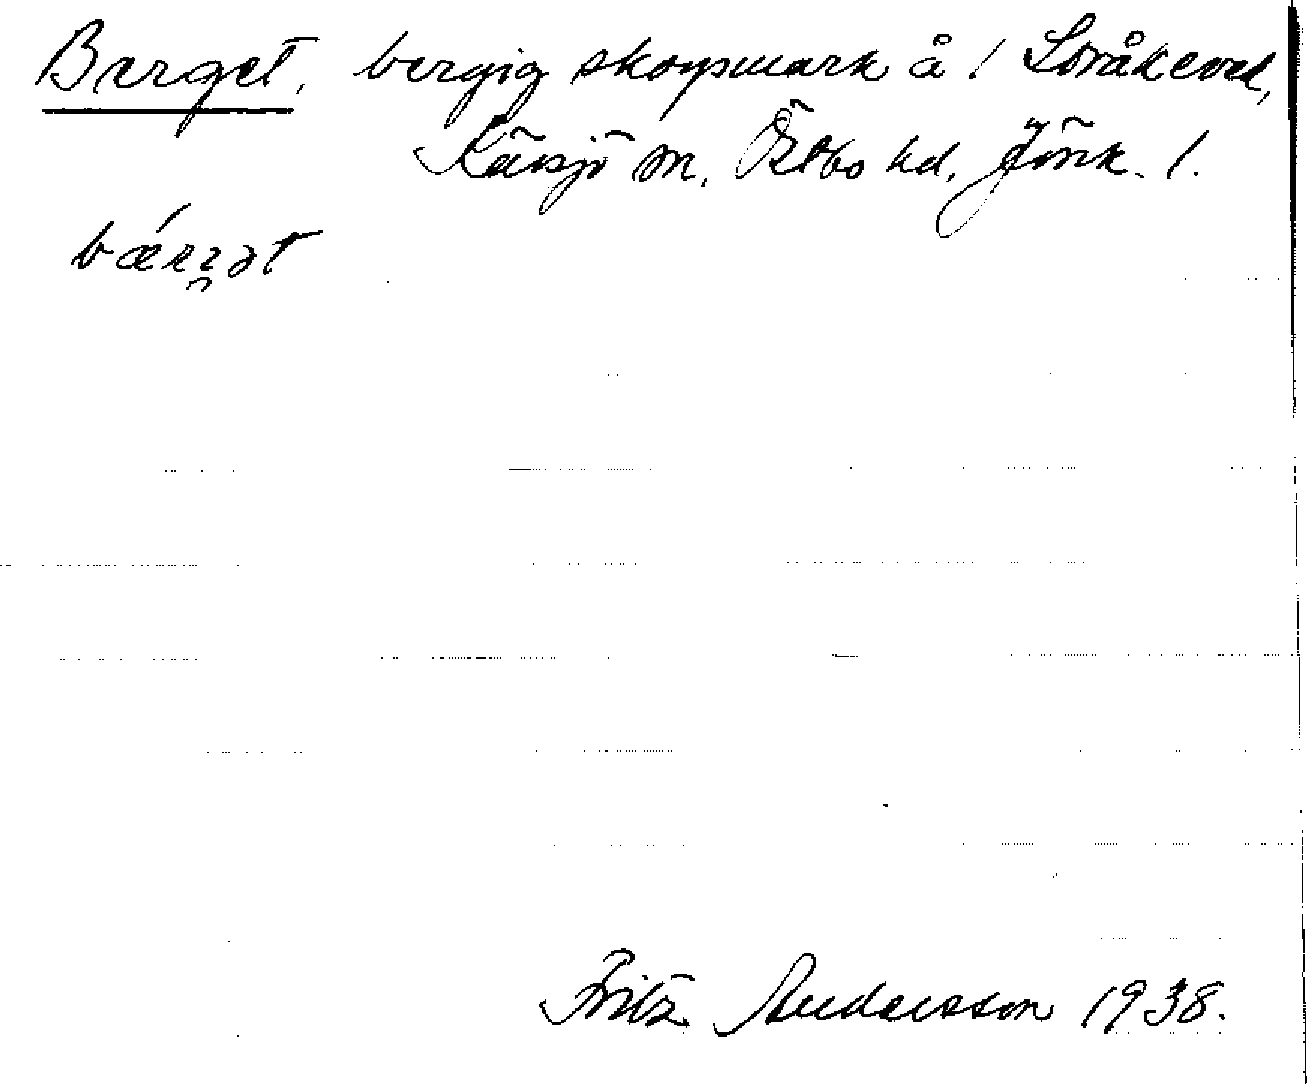 Berget, bergig skogsmark å 1 Loråkevad,
Kävsjö sn, Östbo hd, Jönk. l.
bǽrɪ̯ət
Fritz Andersson 1938.